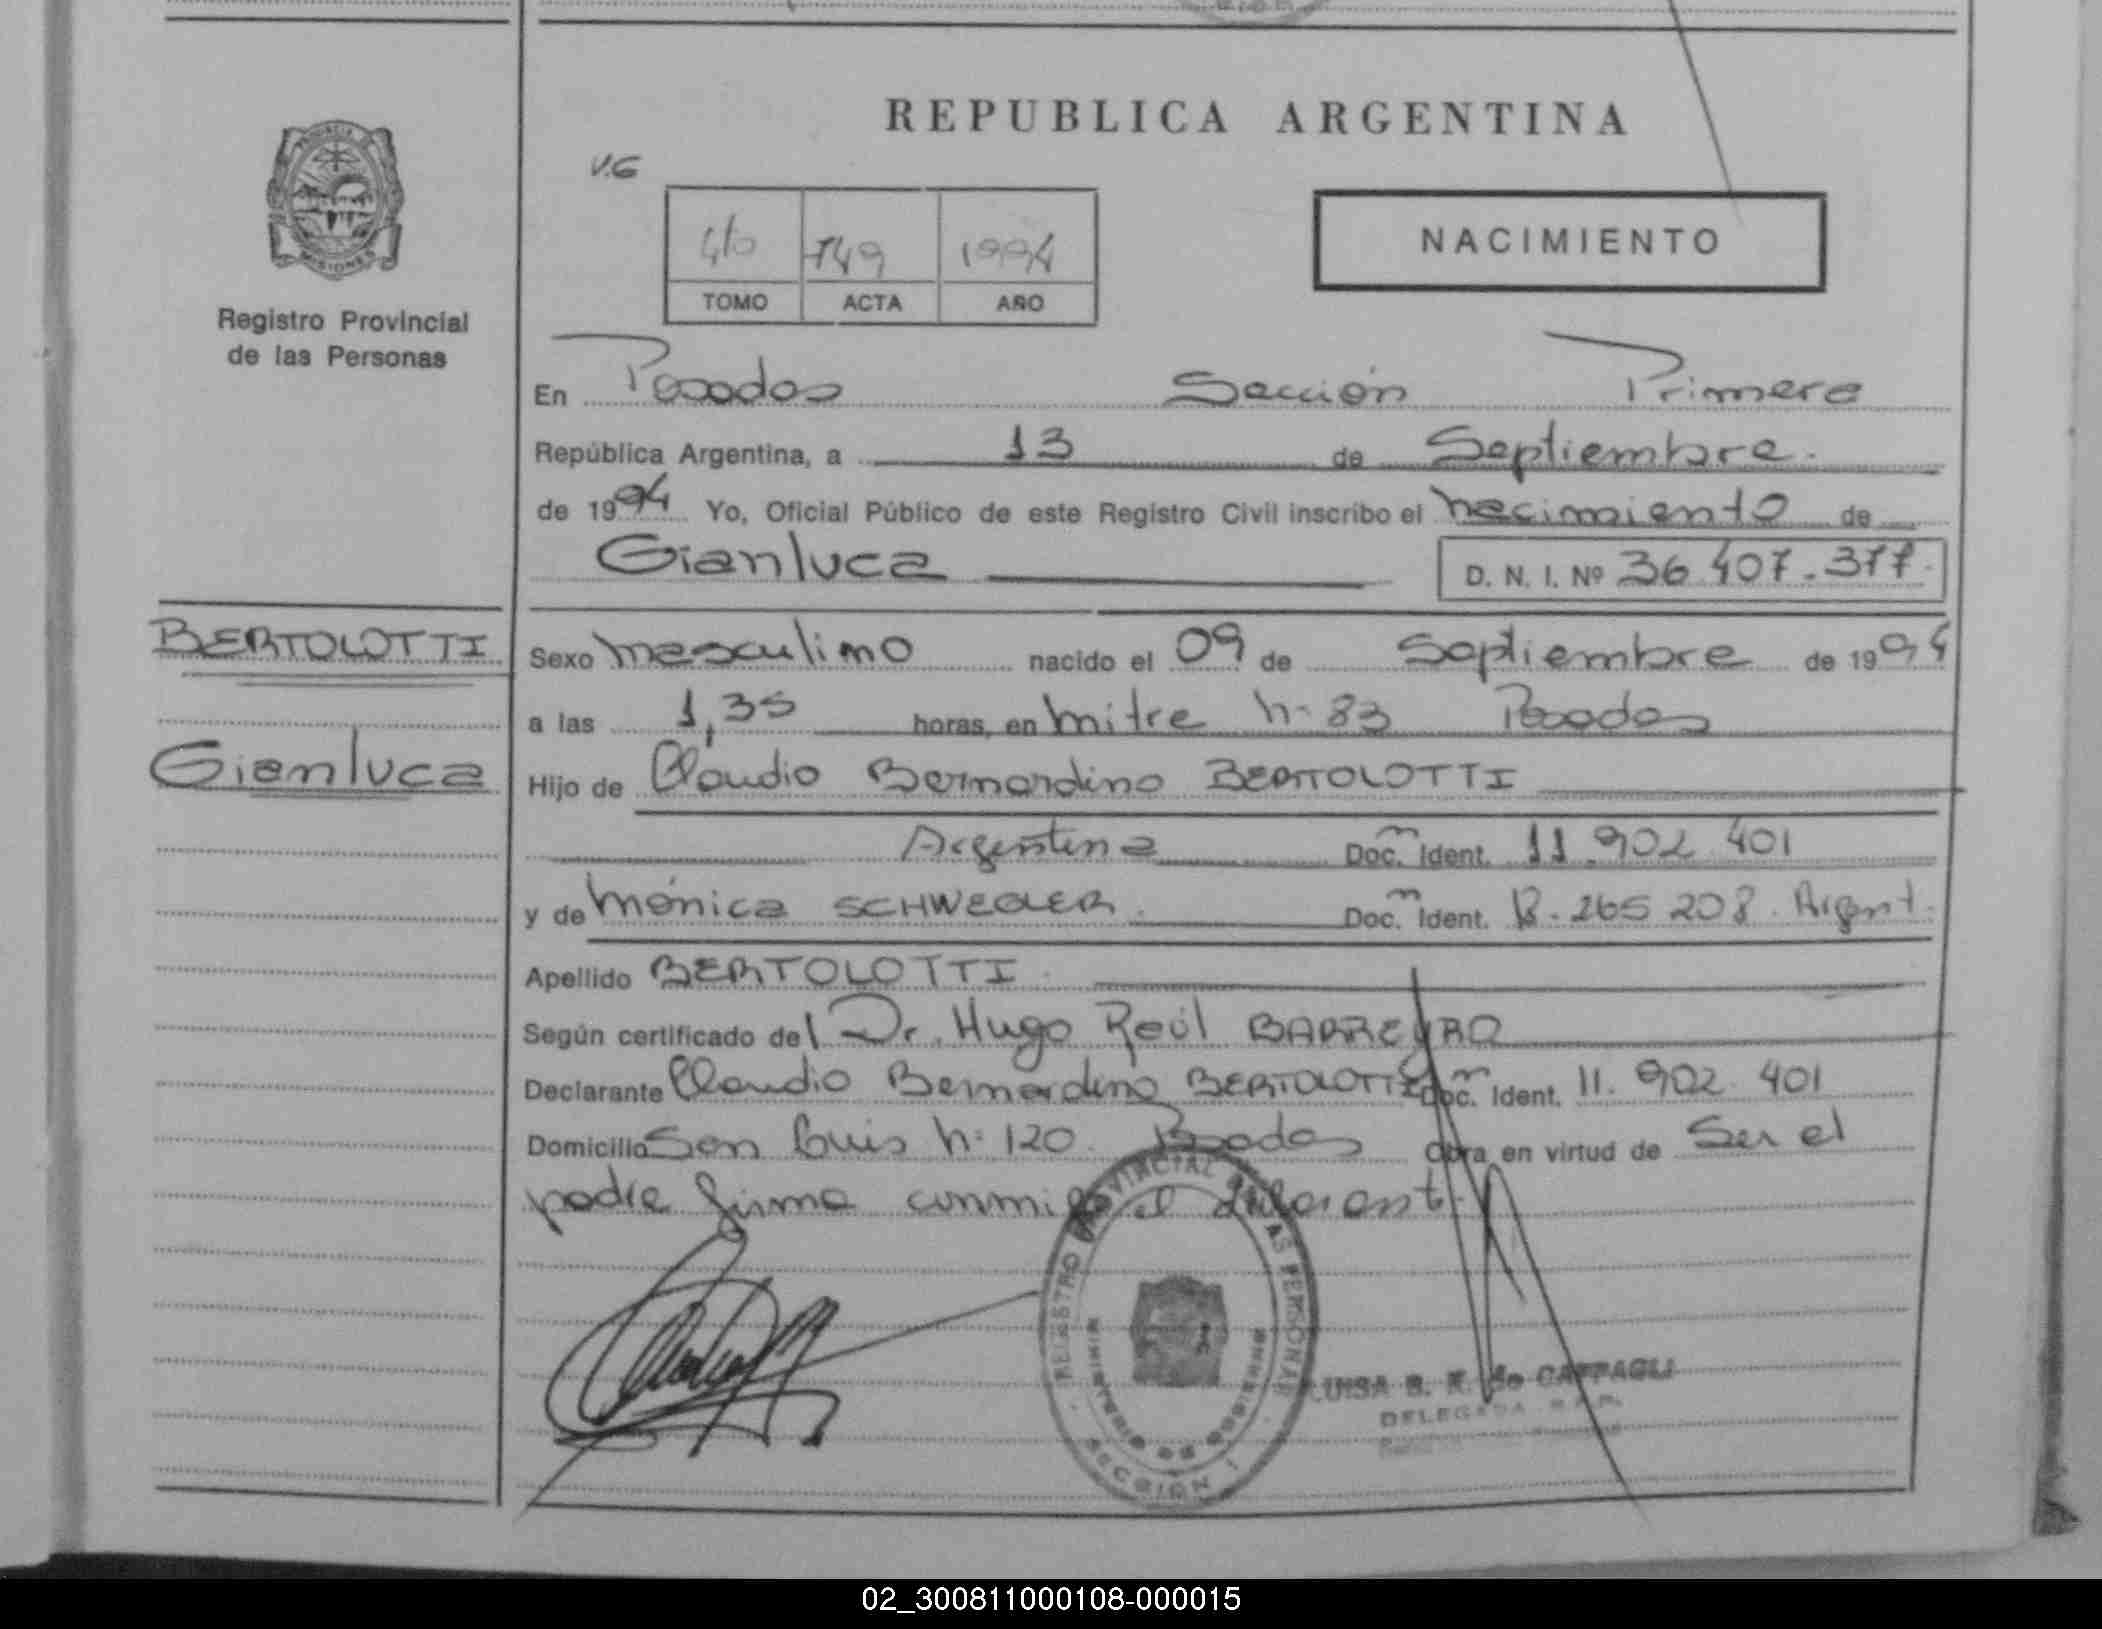 REPUBLICA ARGENTINA
V.G
NACIMIENTO
749 1994
TOMO ACTA AÑO
MISIONES
Registro Provincial
de las Personas
En Posadas Sección Primera
República Argentina, a 13 de Septiembre.
de 1994 Yo, Oficial Público de este Registro Civil inscribo el nacimiento de
Gianluca D. N. I. Nº 36 407.377.
BERTOLOTTI
Gianluca
Sexo masculino nacido el 09 de Septiembre de 1994
a las 1,35 horas, en mitre nº 83 Posadas
Hijo de Claudio Bernardino BERTOLOTTI
Argentina Doc. Ident. 11.902 401
y de Mónica SCHWEGLER. Doc. Ident. 265 208. Argent.
Apellido BERTOLOTTI.
Según certificado del Dr. Hugo Raúl BARREYRO
Declarante Claudio Bernardino BERTOLOTTI Doc. Ident. 11.902.401
Domicilio San Luis nº 120. Posadas Obra en virtud de Ser el
padre firma conmigo el
REGISTRO PROVINCIAL DE LAS PERSONAS
MINISTERIO DE GOBIERNO
SECCION 1
LUISA B. R. de CAFFAGLI
DELEGADA R.P.P.
02_300811000108-000015